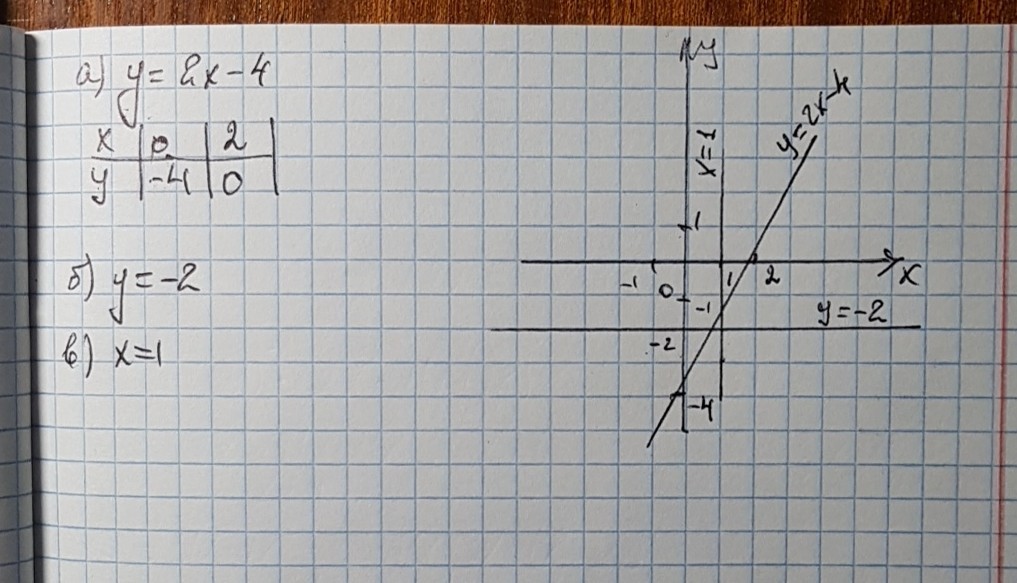 а) y = 2x - 4
x | 0 | 2
y | -4 | 0
б) y = -2
в) x = 1
y
x = 1
y = 2x - 4
1
-1 0 -1 1 2 x
y = -2
-2
-4